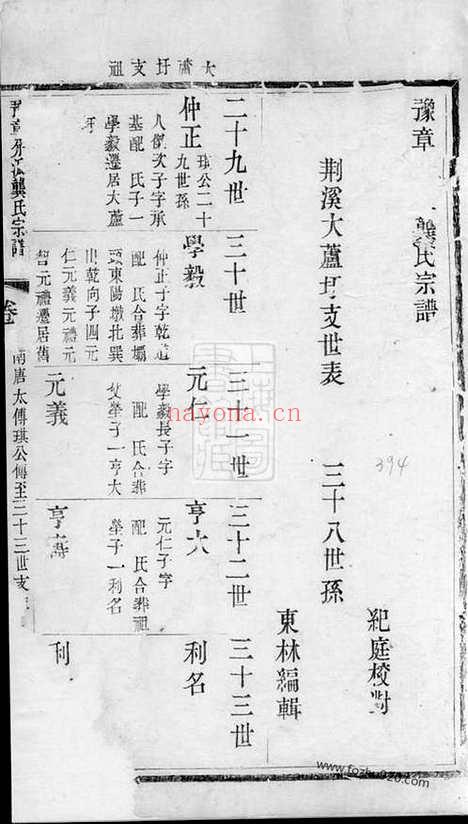 大蘆圩支祖
豫章
龔氏宗譜
荆溪大蘆圩支世表
三十八世孫
紀庭校對
東林編輯
394
二十九世 三十世 三十一世 三十二世 三十三世
仲正
琪公二十
九世孫
人傑次子字承
基配 氏子一
學毅遷居大蘆
圩
學毅
仲正子字乾道
配 氏合葬壩
頭東陽墩北巽
山乾向子四元
仁元義元禮元
智元禮遷居舊
元仁
學毅長子字
配 氏合葬
父塋子一亨大
元義
亨大
元仁子字
配 氏合葬祖
塋子一利名
亨壽
利名
利
龔氏宗譜
卷
南唐太傅琪公傳至三十三世支
nayona.cn
www.fozhu920.com